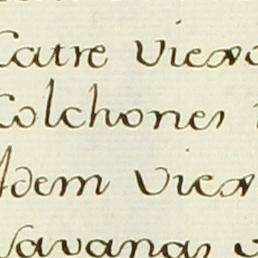 Catre viexo
Colchones
Idem viex
Savanas v